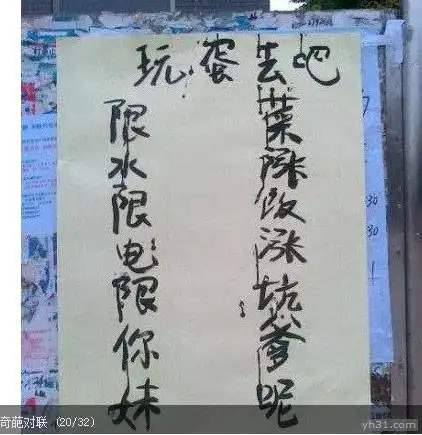 玩蛋去吧
菜涨饭涨坑爹呢
限水限电限你妹
奇葩对联 (20/32)
yh31.com